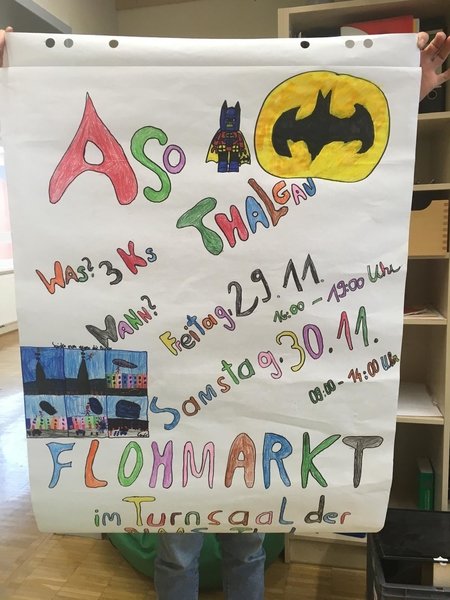 ASO
THALGAU
Was? 3 Ks
Wann?
Freitag. 29.11.
16:00 - 19:00 Uhr
Samstag. 30.11.
09:00 - 14:00 Uhr
FLOHMARKT
im Turnsaal der